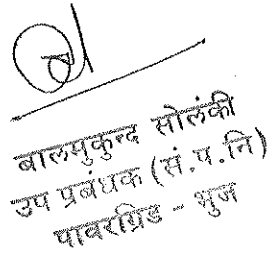 बालमुकुन्द सोलंकी
उप प्रबंधक (सं.प.नि)
पावरग्रिड - भुज